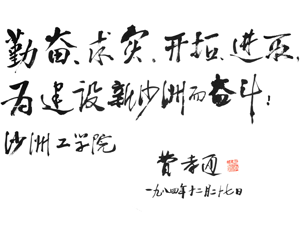 勤奋、求实、开拓、进取,
为建设新沙洲而奋斗!
沙洲工学院
费孝通
一九八四年十二月二十七日